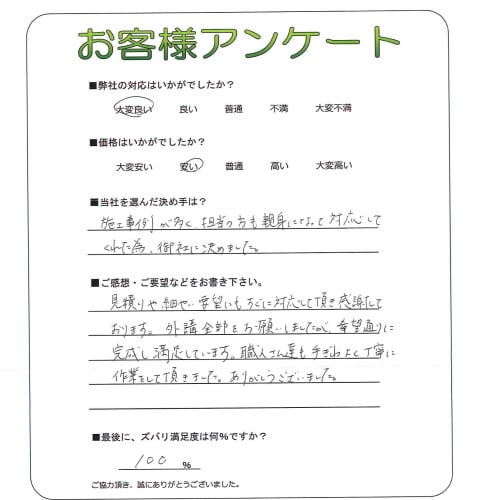 お客様アンケート
■弊社の対応はいかがでしたか？
大変良い 良い 普通 不満 大変不満
■価格はいかがでしたか？
大変安い 安い 普通 高い 大変高い
■当社を選んだ決め手は？
施工事例が多く、担当の方も親身になって対応して
くれた為、御社に決めました。
■ご感想・ご要望などをお書き下さい。
見積りや細かい要望にもすぐに対応して頂き感謝して
おります。外講全部をお願いしましたが、希望通りに
完成し満足しています。職人さん達も手ぎわよく丁寧に
作業をして頂きました。ありがとうございました。
■最後に、ズバリ満足度は何％ですか？
100 %
ご協力頂き、誠にありがとうございました。